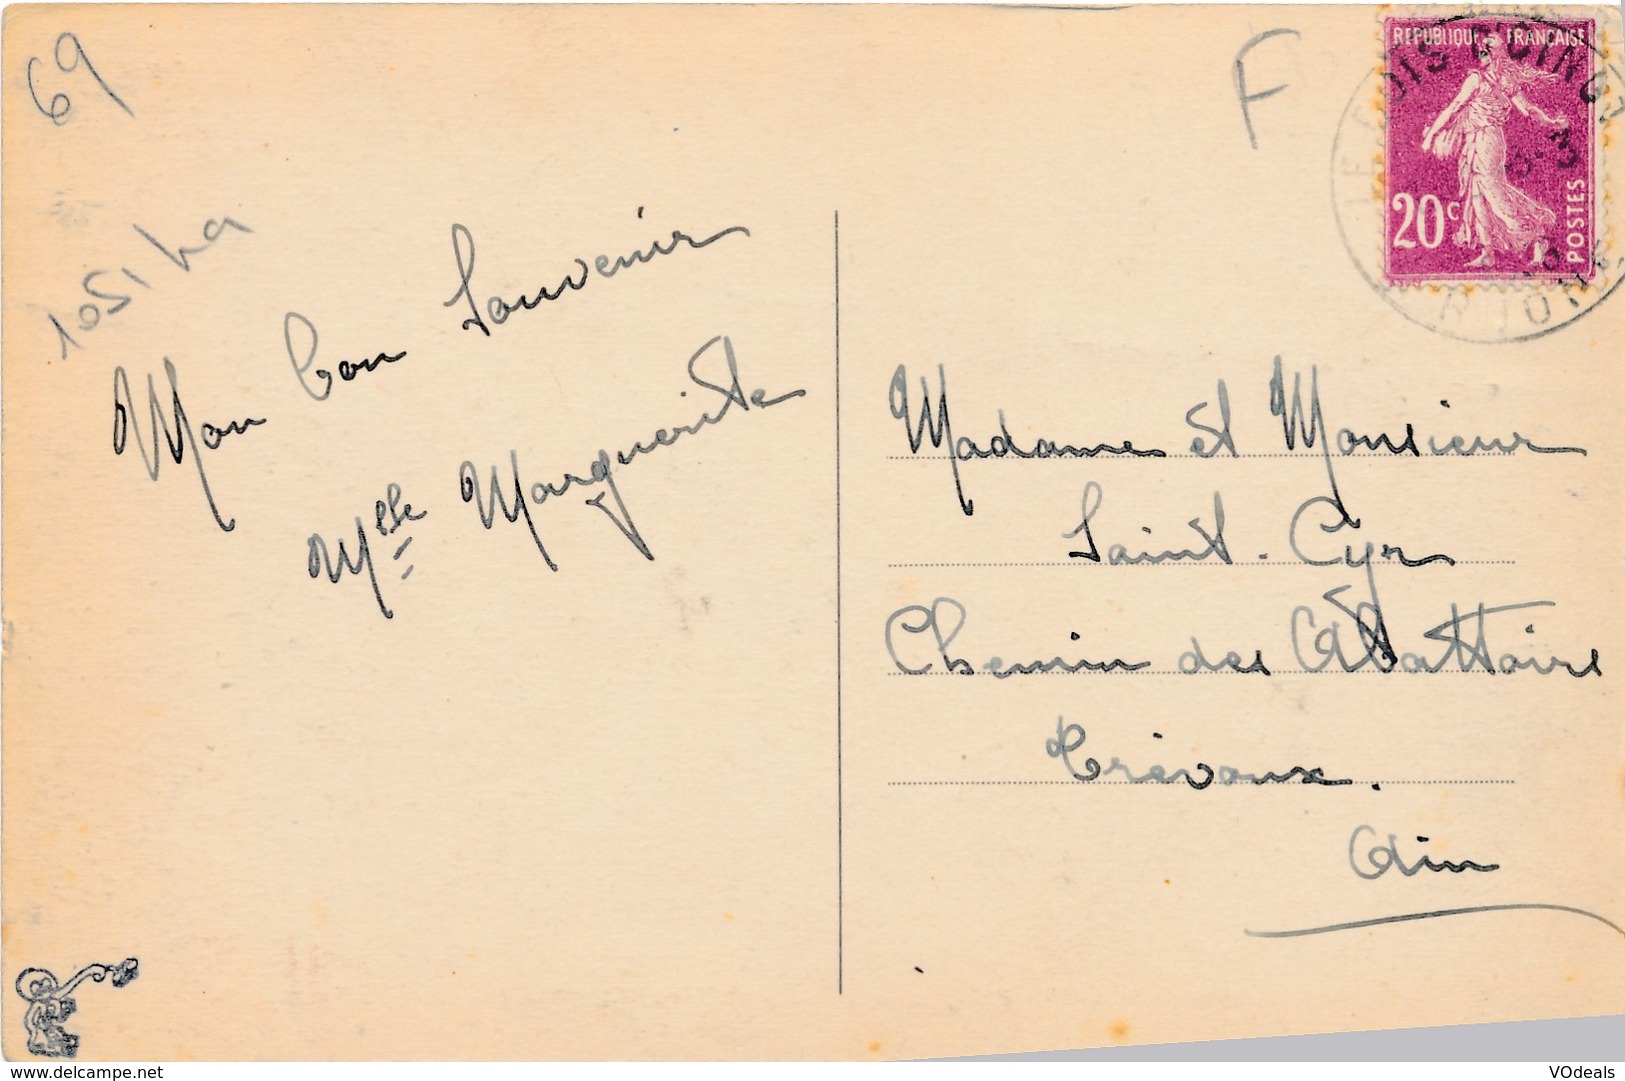 69
F
REPUBLIQUE FRANÇAISE
LE BOIS D'OINGT
20c
POSTES
RHONE
Mon bon Souvenir
Mlle Marguerite
Madame et Monsieur
Saint-Cyr
Chemin des Abattoirs
Trévoux.
Ain
VOdeals